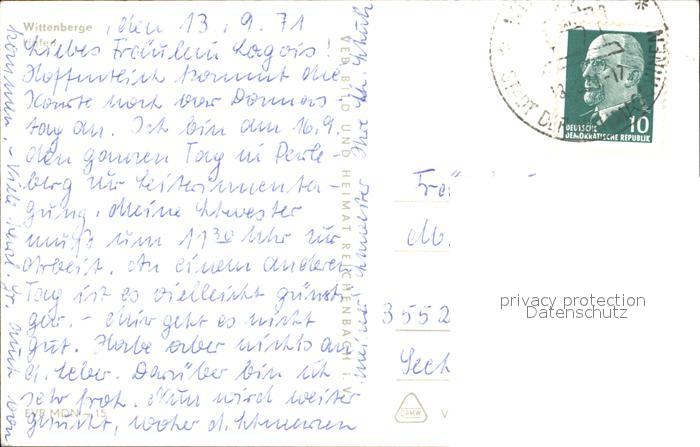 Wittenberge
Hafen
, den 13. 9. 71
Liebes Fräulein Lagois!
Hoffentlich kommt die
Karte noch vor Donners-
tag an. Ich bin am 16.9.
den ganzen Tag in Perle-
berg zur Leiterinnenta-
gung. Meine Schwester
muß um 11 30 Uhr zur
Arbeit. An einem anderen
Tag ist es vielleicht günsti-
ger. - Mir geht es nicht
gut. Habe aber nichts an
d. Leber. Darüber bin ich
sehr froh. Nun wird weiter
gesucht, woher d. Schmerzen
kommen. - Viele herzl. Gr. auch von
meiner Schwester Ihre
VEB BILD UND HEIMAT REICHENBACH I. V.
EVP MDN -,15
DAMW
V
STADT DER
DEUTSCHE
DEMOKRATISCHE REPUBLIK
10
Frä
M.
3552
Seeh
privacy protection
Datenschutz